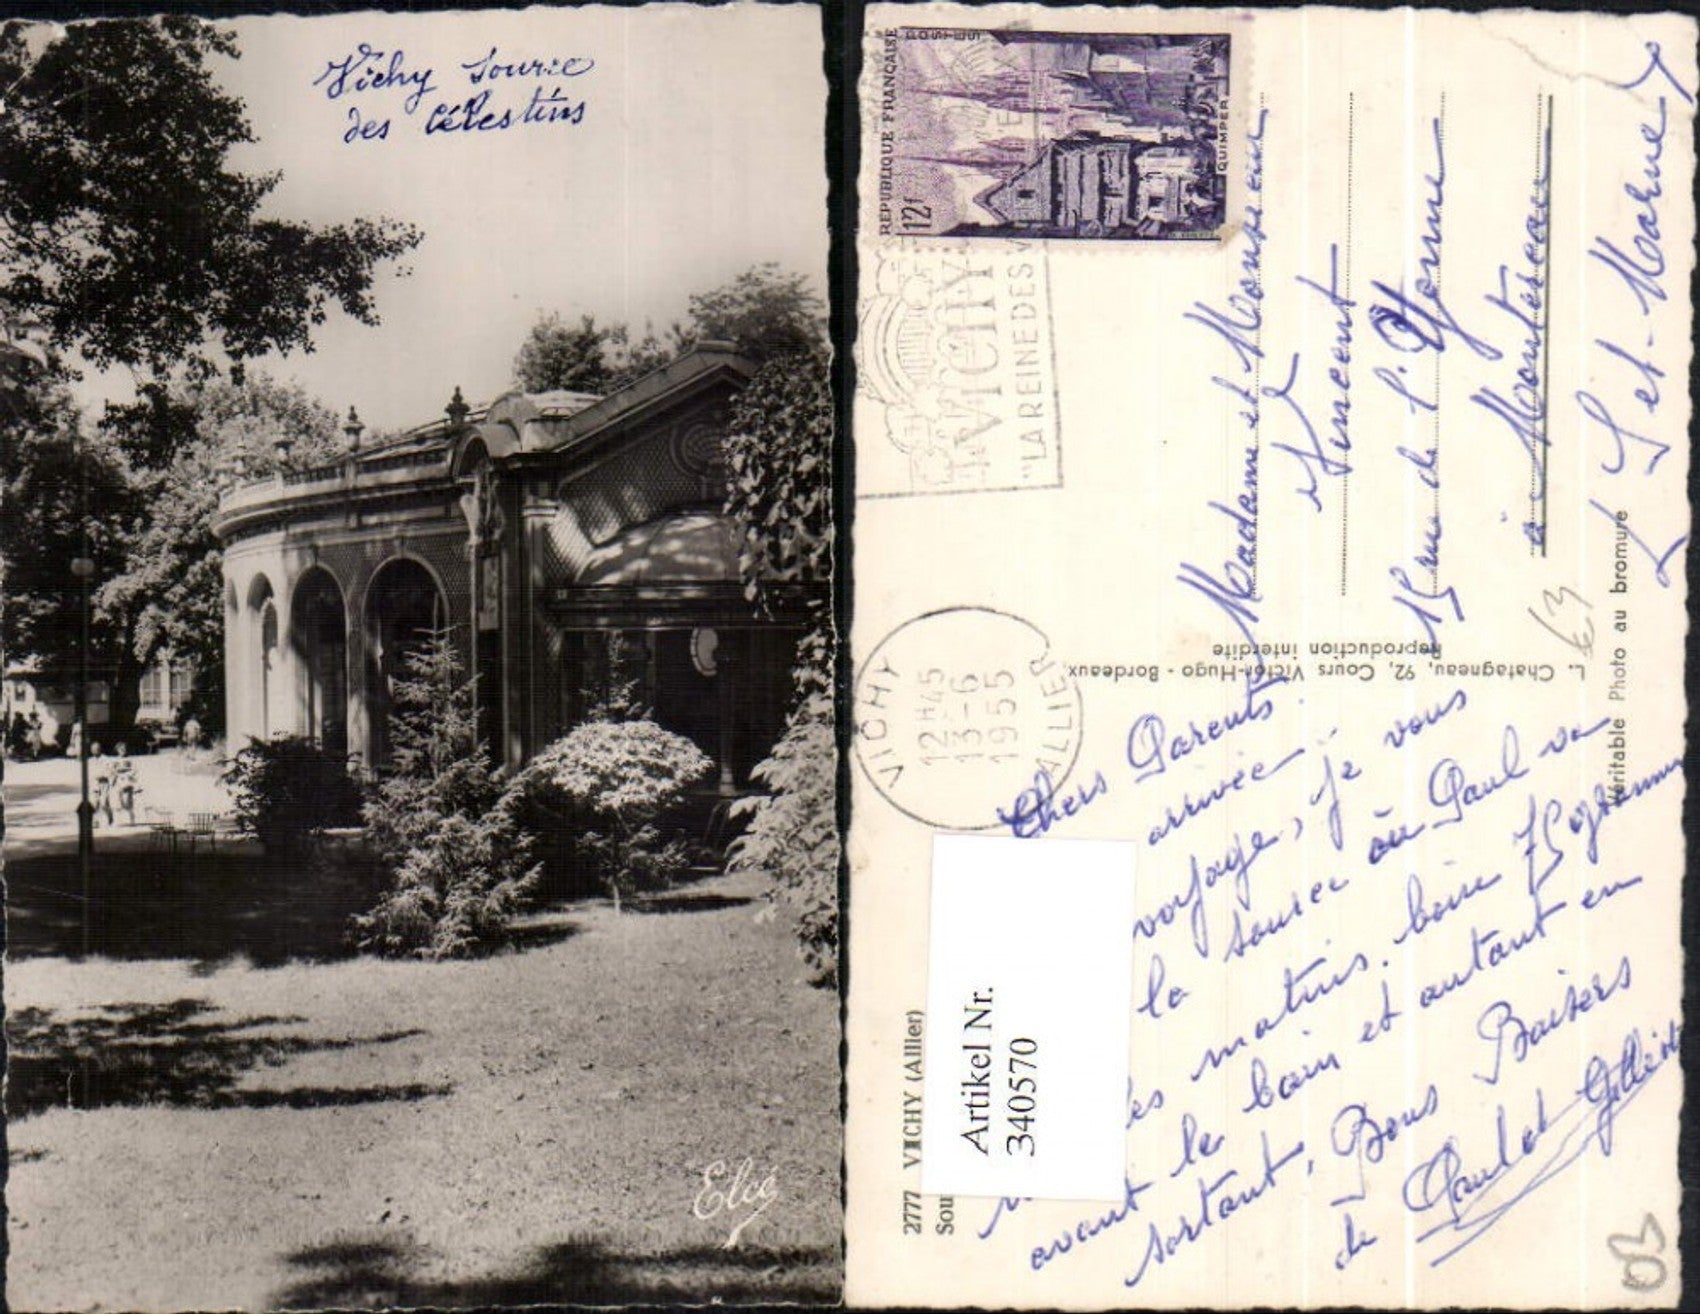 Vichy source
des Célestins
Elcé
RÉPUBLIQUE FRANÇAISE
POSTES
12f
QUIMPER
VICHY
"LA REINE DES V
VICHY
12H45
13-6
1955
ALLIER
Madame et Monsieur
Vincent
15 rue de l'Yonne
à Montereau
S et-Marne
L. Chatagneau, 92, Cours Victor-Hugo - Bordeaux
Reproduction interdite
Véritable Photo au bromure
2777 VICHY (Allier)
Sou
Artikel Nr.
340570
Chers Parents.
arrivée
voyage, je vous
la source où Paul va
les matins. boire 75 grammes
avant le bain et autant en
sortant, Bons Baisers
de Paul et
€3
03